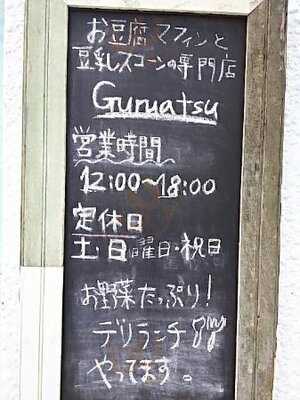 お豆腐マフィンと
豆乳スコーンの専門店
Guruatsu
営業時間
12:00〜18:00
定休日
土・日曜日・祝日
お野菜たっぷり！
デリランチ
やってます。